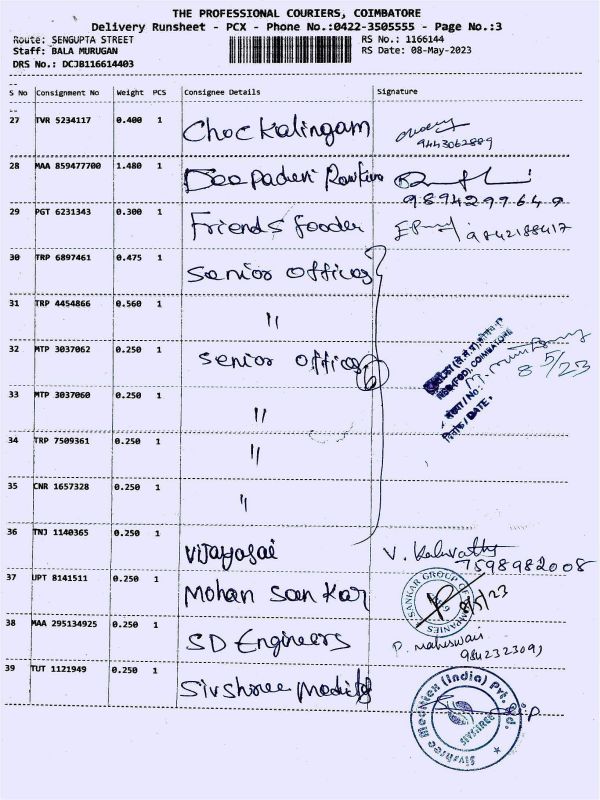 THE PROFESSIONAL COURIERS, COIMBATORE
Delivery Runsheet - PCX - Phone No.:0422-3505555 - Page No.:3
Route: SENGUPTA STREET RS No.: 1166144
Staff: BALA MURUGAN RS Date: 08-May-2023
DRS No.: DCJB116614403
S No Consignment No Weight PCS Consignee Details Signature
27 TVR 5234117 0.400 1 Chockalingam
9443062889
28 MAA 859477700 1.480 1
9894299649
29 PGT 6231343 0.300 1 Friends 9842188417
30 TRP 6897461 0.475 1 Senior officer
31 TRP 4454866 0.560 1 "
32 MTP 3037062 0.250 1 Senior officer 6
8/5/23
33 MTP 3037060 0.250 1 "
34 TRP 7509361 0.250 1 "
35 CNR 1657328 0.250 1 "
36 TNJ 1140365 0.250 1 Vijayasai V.
7598982008
37 UPT 8141511 0.250 1 Mohan Sankar SANKAR GROUP OF COMPANIES 8/5/23
38 MAA 295134925 0.250 1 SD Engineers P. maheswari
39 TUT 1121949 0.250 1 Sivshree
Sivshree (India) Pvt. Ltd.
SIVSHREE